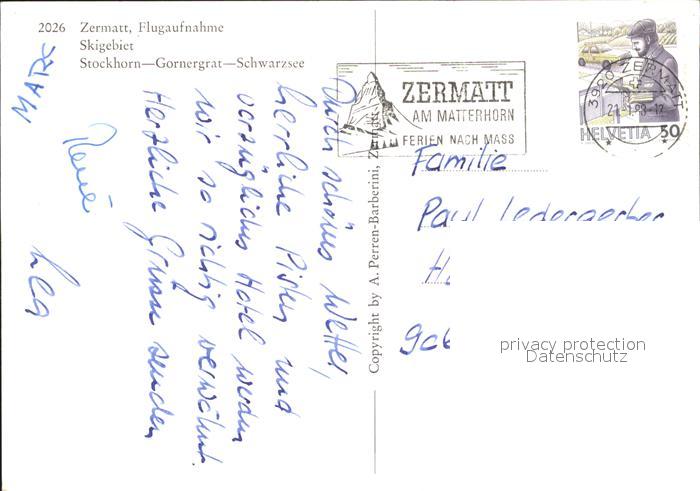 2026 Zermatt, Flugaufnahme
Skigebiet
Stockhorn—Gornergrat—Schwarzsee
Durch schönes Wetter,
herrliche Pisten und
vorzügliches Hotel werden
wir so richtig verwöhnt.
Herzliche Grüsse senden
René
Lea
Copyright by A. Perren-Barberini, Zermatt
ZERMATT
AM MATTERHORN
FERIEN NACH MASS
3920 ZERMATT
HELVETIA 50
Familie
Paul
privacy protection
Datenschutz